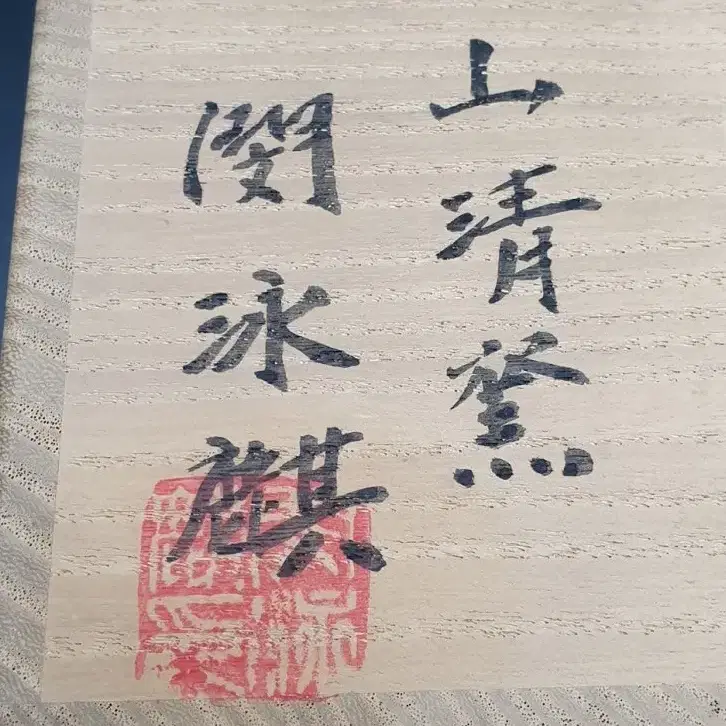 山清窯
閔泳麒